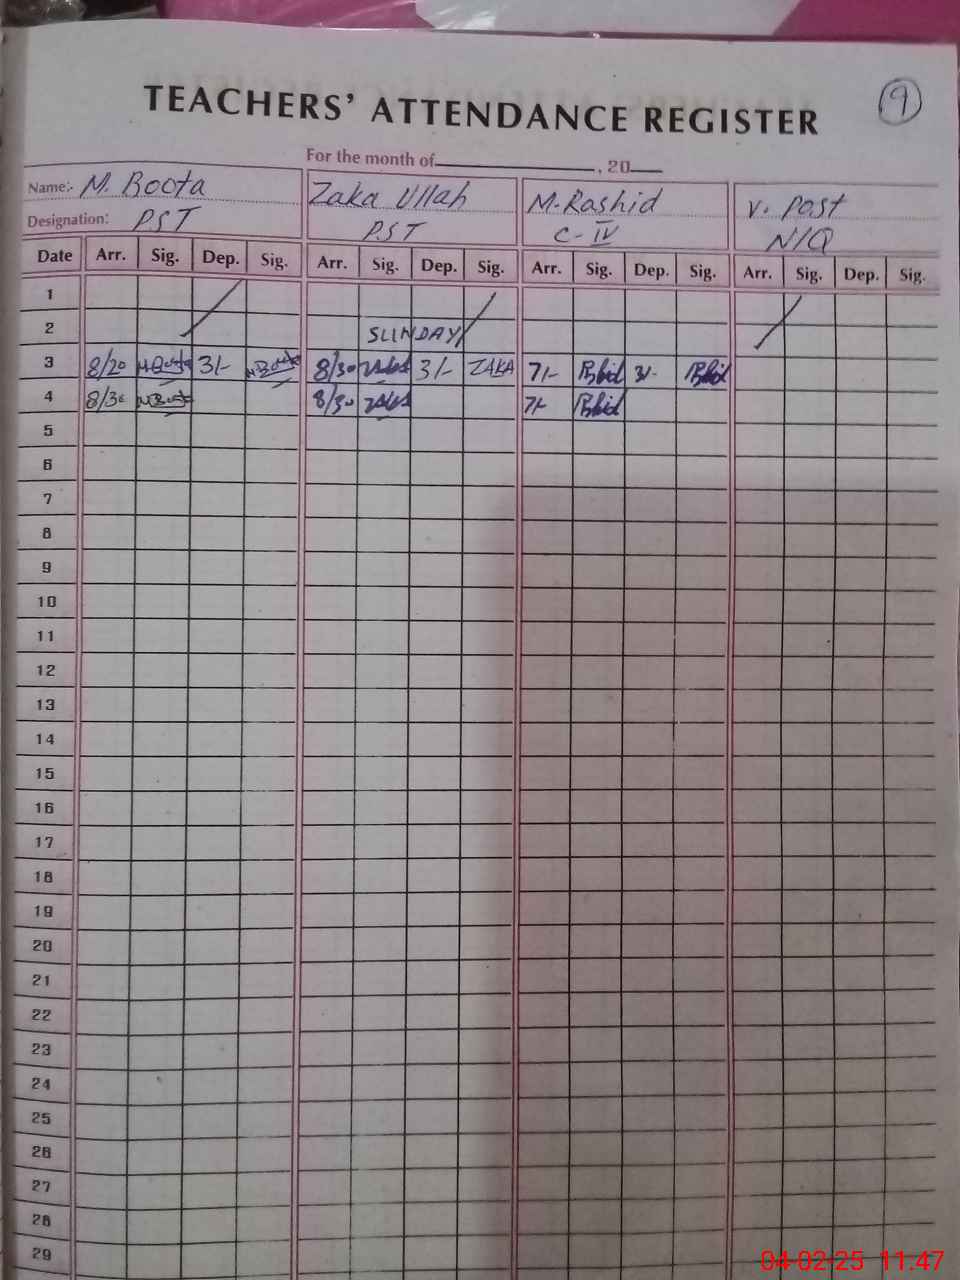 TEACHERS' ATTENDANCE REGISTER 9
For the month of , 20
Name:- M. Boota Zaka Ullah M. Rashid V. Post
Designation: PST P.ST C-IV N/Q
Date Arr. Sig. Dep. Sig. Arr. Sig. Dep. Sig. Arr. Sig. Dep. Sig. Arr. Sig. Dep. Sig.
1
2 SUNDAY
3 8/20 M.Boota 3/- M.Boota 8/30 3/- ZAKA 7/- 3/-
4 8/30 M.Boota 8/30 7/-
5
6
7
8
9
10
11
12
13
14
15
16
17
18
19
20
21
22
23
24
25
26
27
28
29
04-02-25 11.47